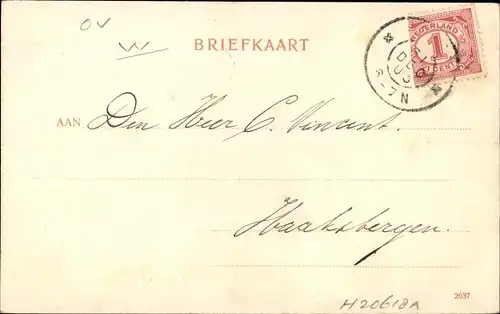 OV
BRIEFKAART
NEDERLAND
1
CENT
DEC
8-9 N
AAN Den Heer C. Vincent.
Haaksbergen.
2637
H20618A